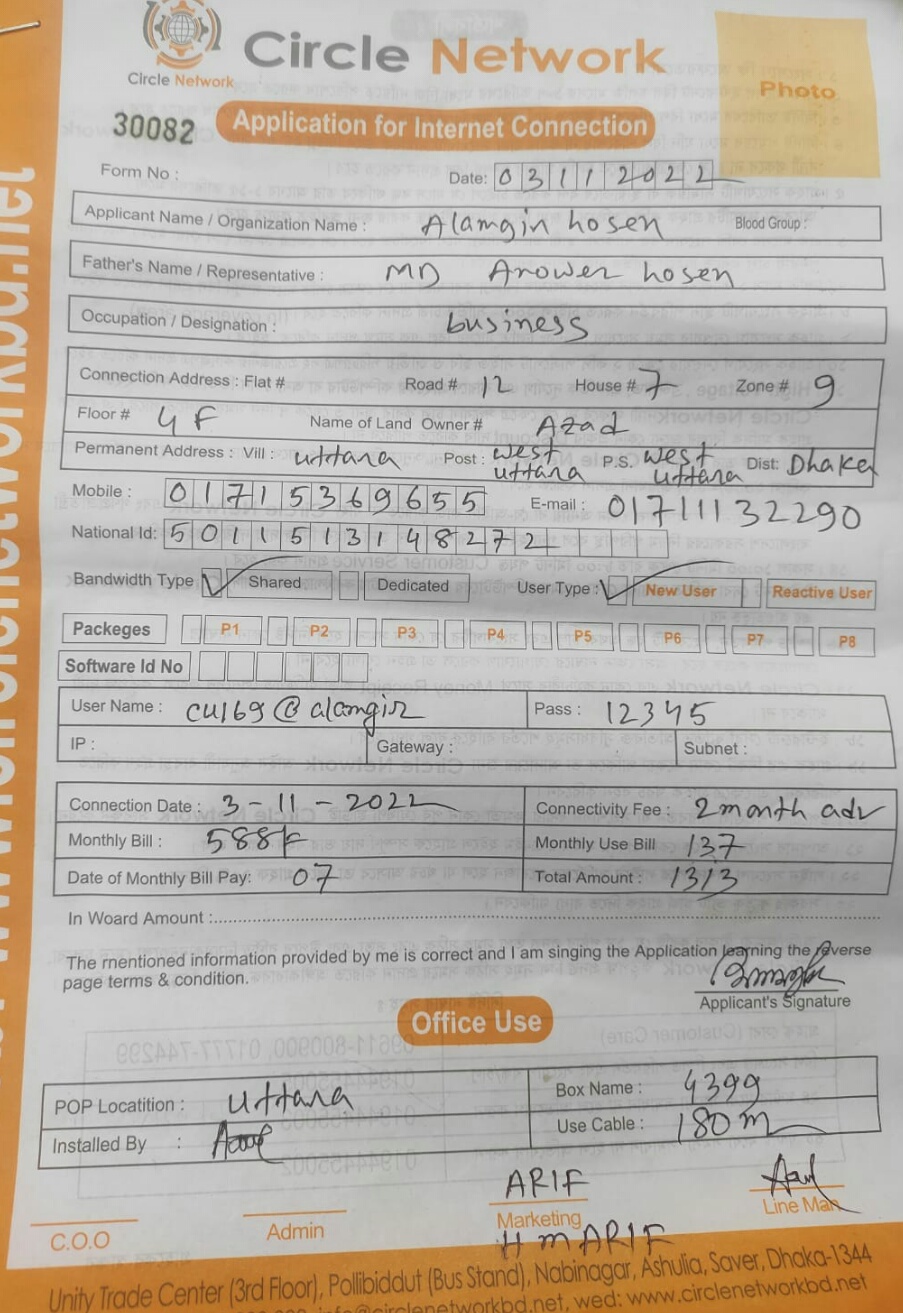 Circle Network
Circle Network
Photo
30082
Application for Internet Connection
Form No :
Date: 03112022
Applicant Name / Organization Name : Alamgin hosen Blood Group :
Father's Name / Representative : MD Anower hosen
Occupation / Designation : business
Connection Address : Flat # Road # 12 House # 7 Zone # 9
Floor # 4 F Name of Land Owner # Azad
Permanent Address : Vill : uttana Post : west uttana P.S. west uttana Dist: Dhaka
Mobile : 01715369655 E-mail : 01711132290
National Id: 5011513148272
Bandwidth Type : Shared Dedicated User Type : New User Reactive User
Packeges P1 P2 P3 P4 P5 P6 P7 P8
Software Id No
User Name : cu169@alamgir Pass : 12345
IP : Gateway : Subnet :
Connection Date : 3-11-2022 Connectivity Fee : 2 month adv
Monthly Bill : 588 Monthly Use Bill 137
Date of Monthly Bill Pay: 07 Total Amount : 1313
In Woard Amount :
The mentioned information provided by me is correct and I am singing the Application learning the reverse
page terms & condition.
Applicant's Signature
Office Use
POP Locatition : uttana Box Name : 4399
Installed By : Use Cable : 180 m
ARIF
C.O.O Admin Marketing Line Man
H m ARIF
Unity Trade Center (3rd Floor), Pollibiddut (Bus Stand), Nabinagar, Ashulia, Saver, Dhaka-1344
info@circlenetworkbd.net, wed: www.circlenetworkbd.net